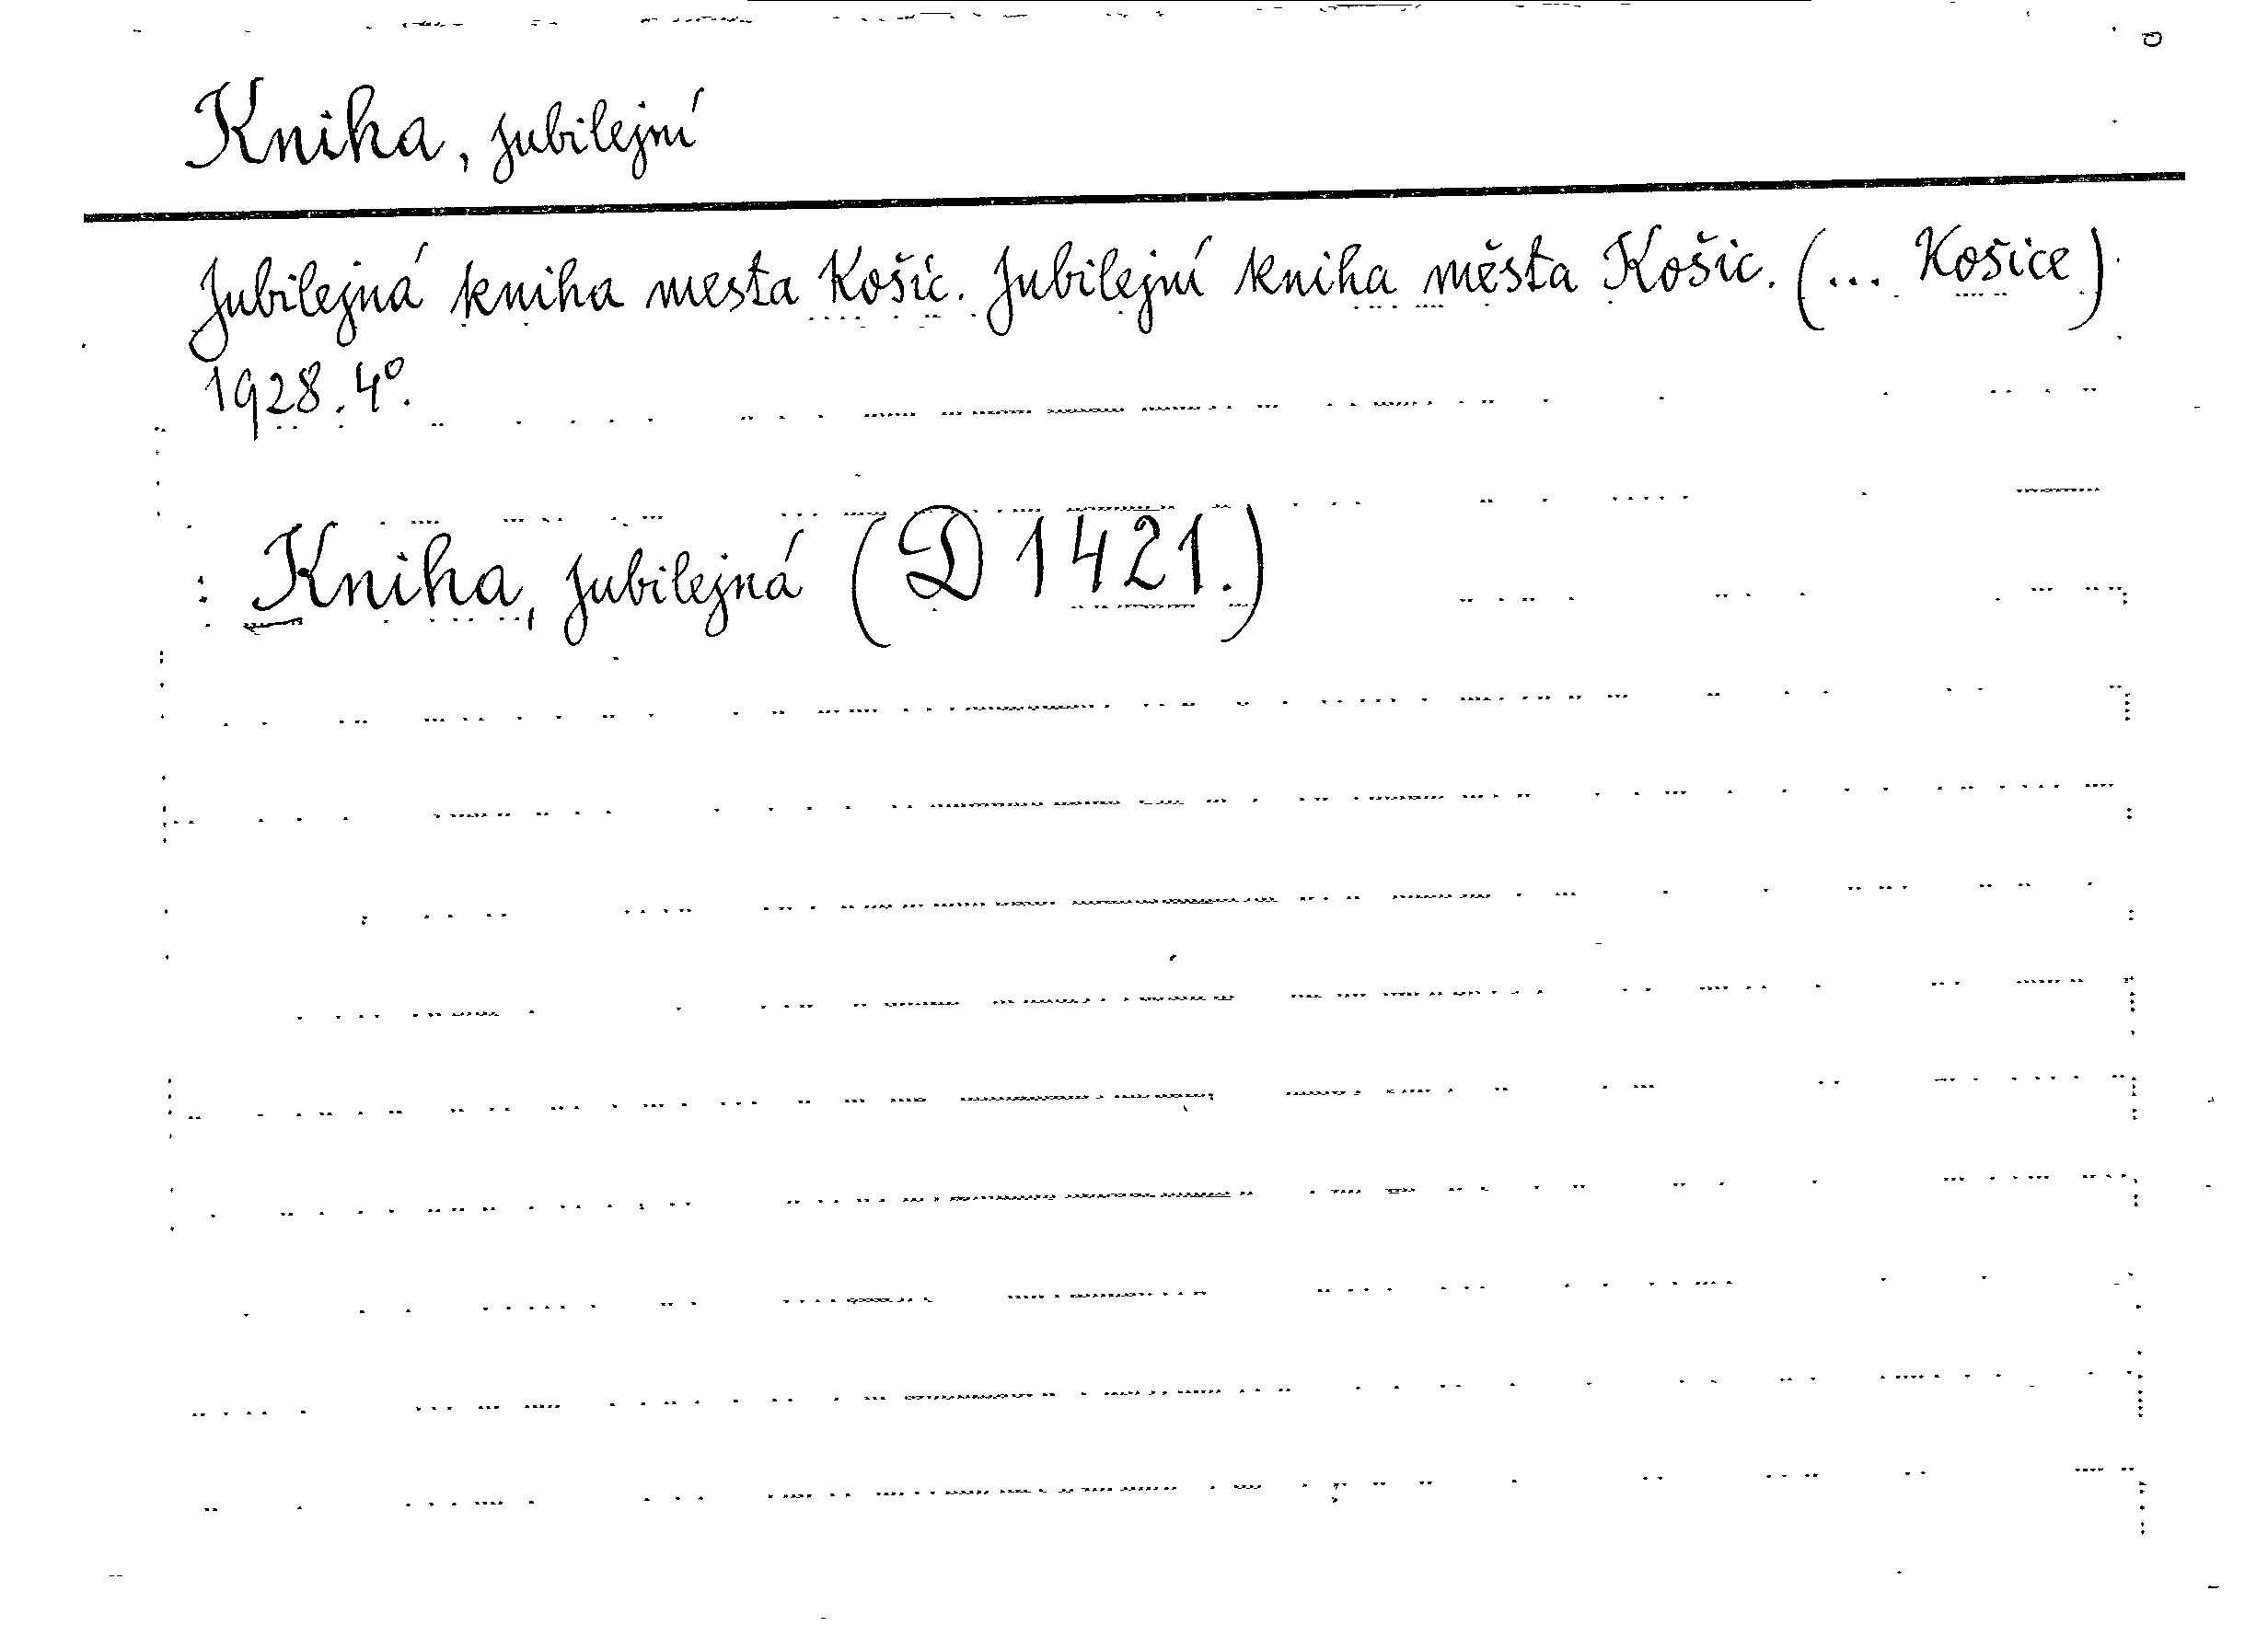 Kniha, jubilejní
Jubilejná kniha mesta Košíc. Jubilejní kniha města Košic. (... Košice)
1928. 4°.
: Kniha, jubilejná (D 1421.)